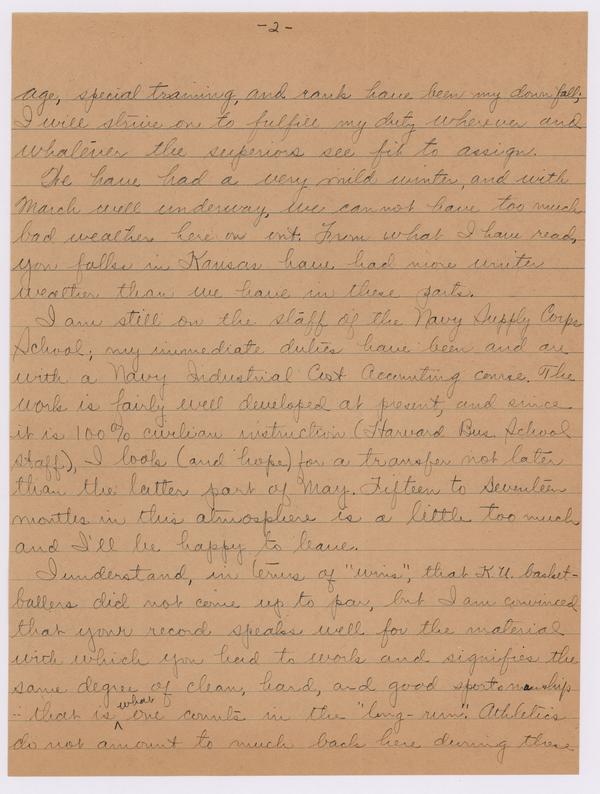 -2-
age, special training, and rank have been my downfall;
I will strive on to fulfill my duty wherever and
whatever the superiors see fit to assign.
The have had a very mild winter, and with
March well underway, we can not have too much
bad weather here on out. From what I have read,
you folks in Kansas have had more winter
weather than we have in these parts.
I am still on the staff of the Navy Supply Corps
School; my immediate duties have been and are
with a Navy Industrial Cost Accounting course. The
work is fairly well developed at present, and since
it is 100% civilian instruction (Harvard Bus. School
staff), I look (and hope) for a transfer not later
than the latter part of May. Fifteen to seventeen
months in this atmosphere is a little too much
and I'll be happy to leave.
I understand, in terms of "wins", that K.U. basket-
ballers did not come up to par, but I am convinced
that your record speaks well for the material
with which you had to work and signifies the
same degree of clean, hard, and good sportsmanship
-- that is what one counts in the "long-run". Athletics
do not amount to much back here during these